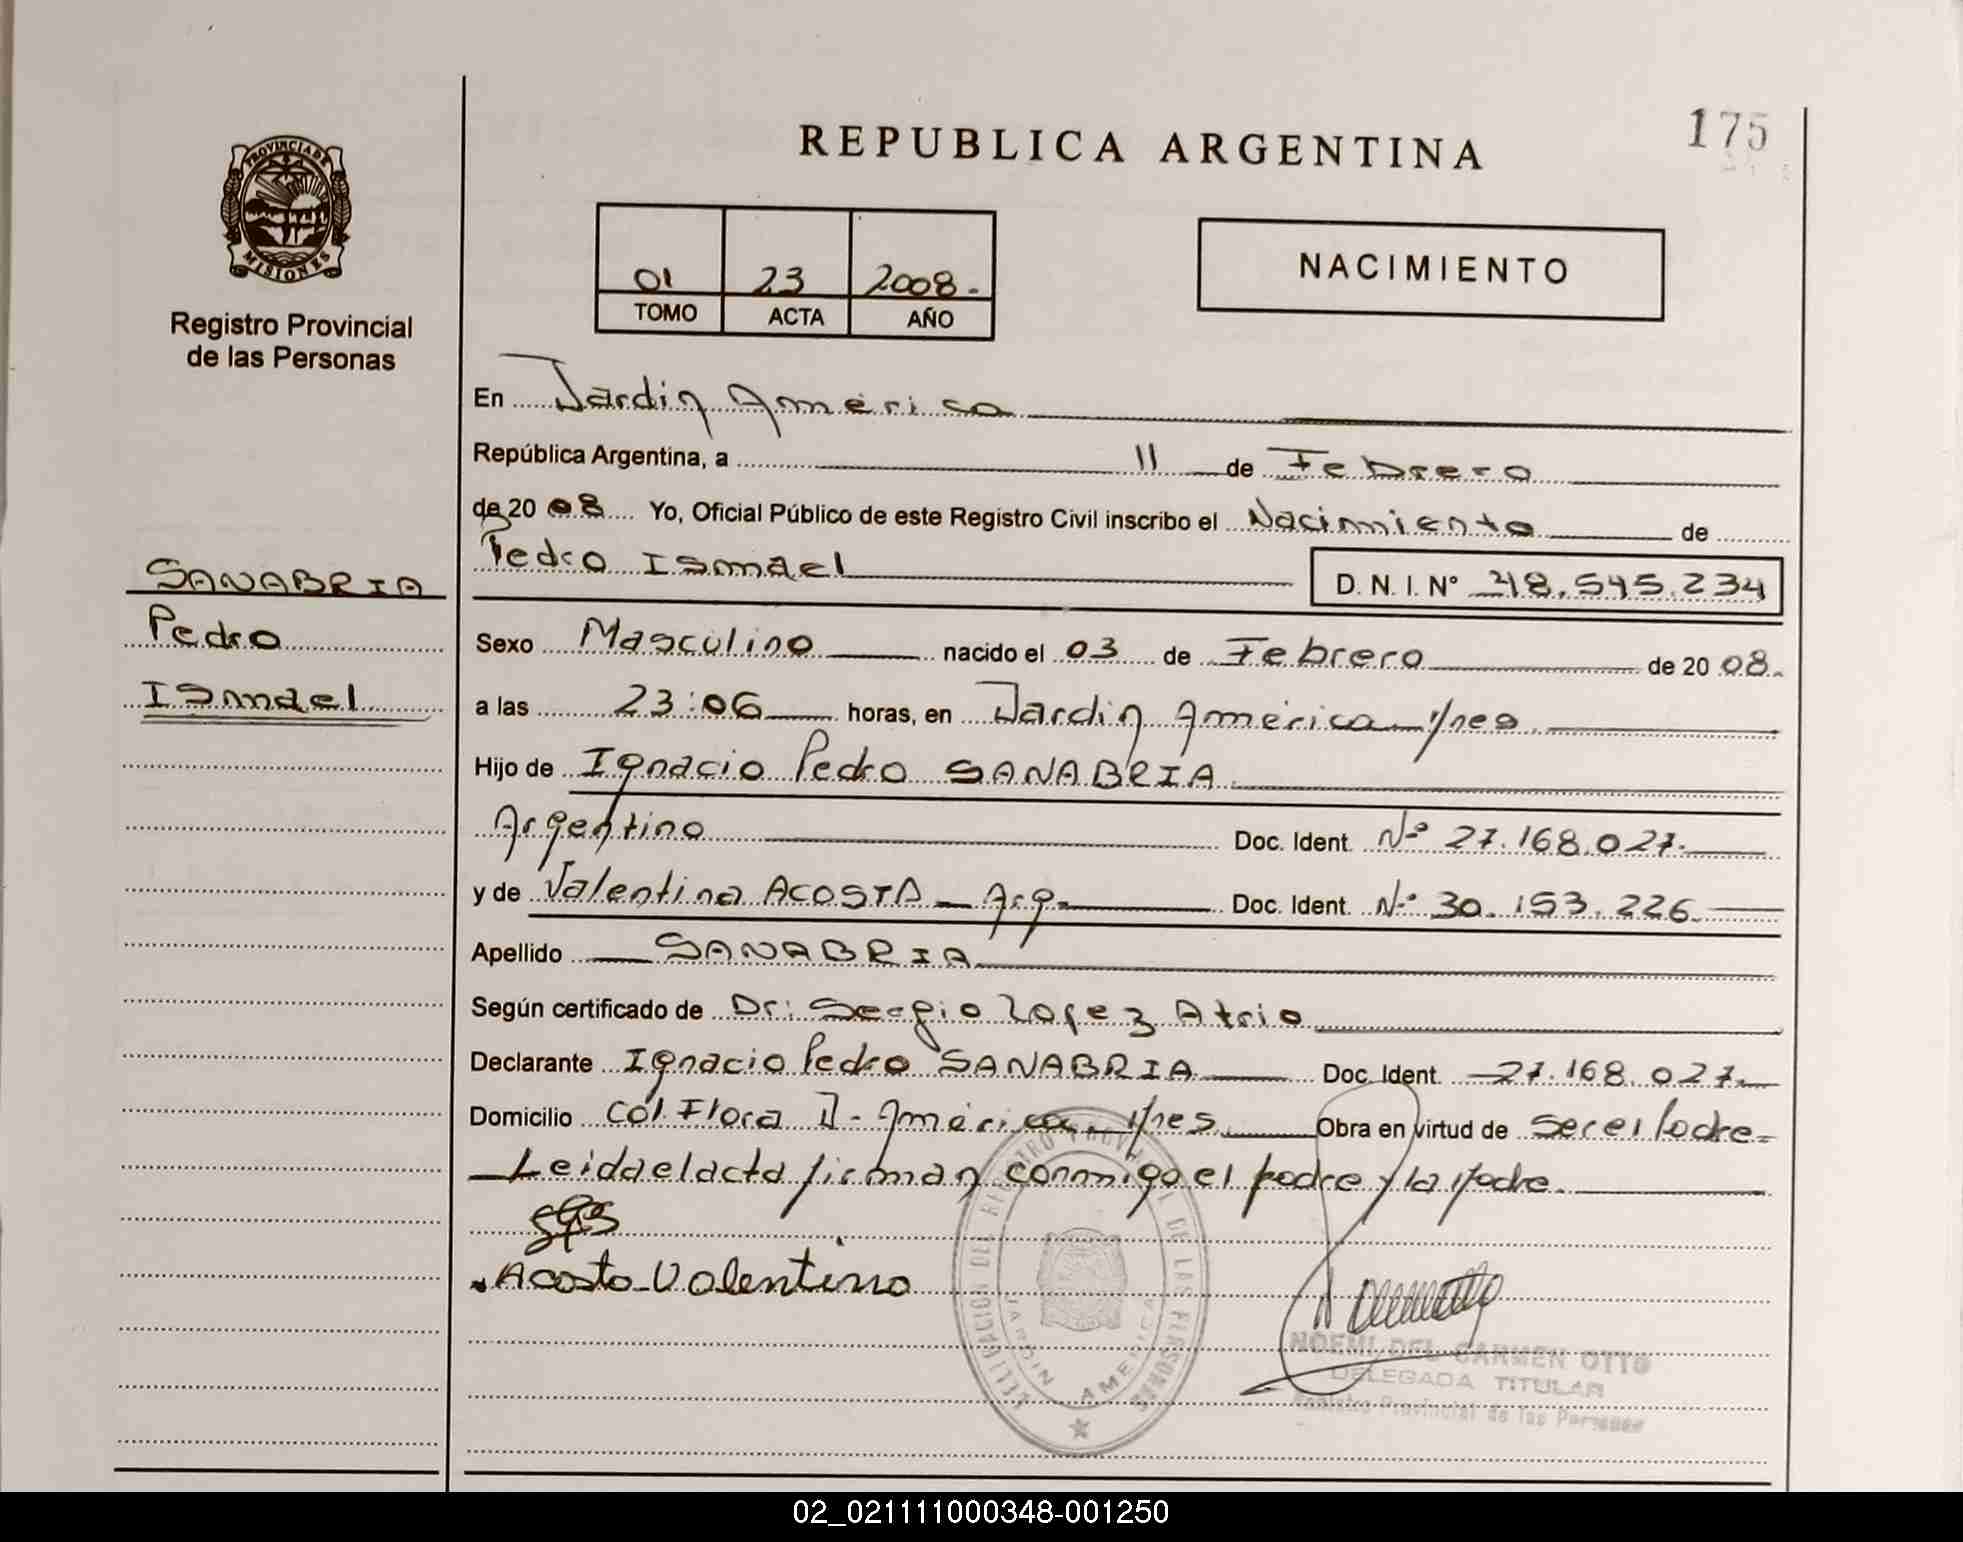 REPUBLICA ARGENTINA
175
PROVINCIA DE MISIONES
Registro Provincial
de las Personas
01 23 2008.-
TOMO ACTA AÑO
NACIMIENTO
En Jardin América
República Argentina, a 11 de Febrero
de 2008 Yo, Oficial Público de este Registro Civil inscribo el Nacimiento de
Pedro Ismael D. N. I. N° 48.545.234
SANABRIA
Pedro
Ismael
Sexo Masculino nacido el 03 de Febrero de 20 08.-
a las 23:06 horas, en Jardin América Mnes.
Hijo de Ignacio Pedro SANABRIA
Argentino Doc. Ident. Nº 27.168.027.
y de Valentina ACOSTA - Arg. Doc. Ident. Nº 30.153.226.
Apellido SANABRIA
Según certificado de Dr: Sergio Lopez Atrio
Declarante Ignacio Pedro SANABRIA Doc. Ident. 27.168.027.
Domicilio Col. Flora J- América Mnes Obra en virtud de Ser el Padre=
Leida el acta firman conmigo el padre y la Madre.
Acosta Valentina
DELEGACION DEL REGISTRO PROVINCIAL DE LAS PERSONAS
JARDIN AMERICA
NOEMI DEL CARMEN OTTO
DELEGADA TITULAR
Registro Provincial de las Personas
02_021111000348-001250